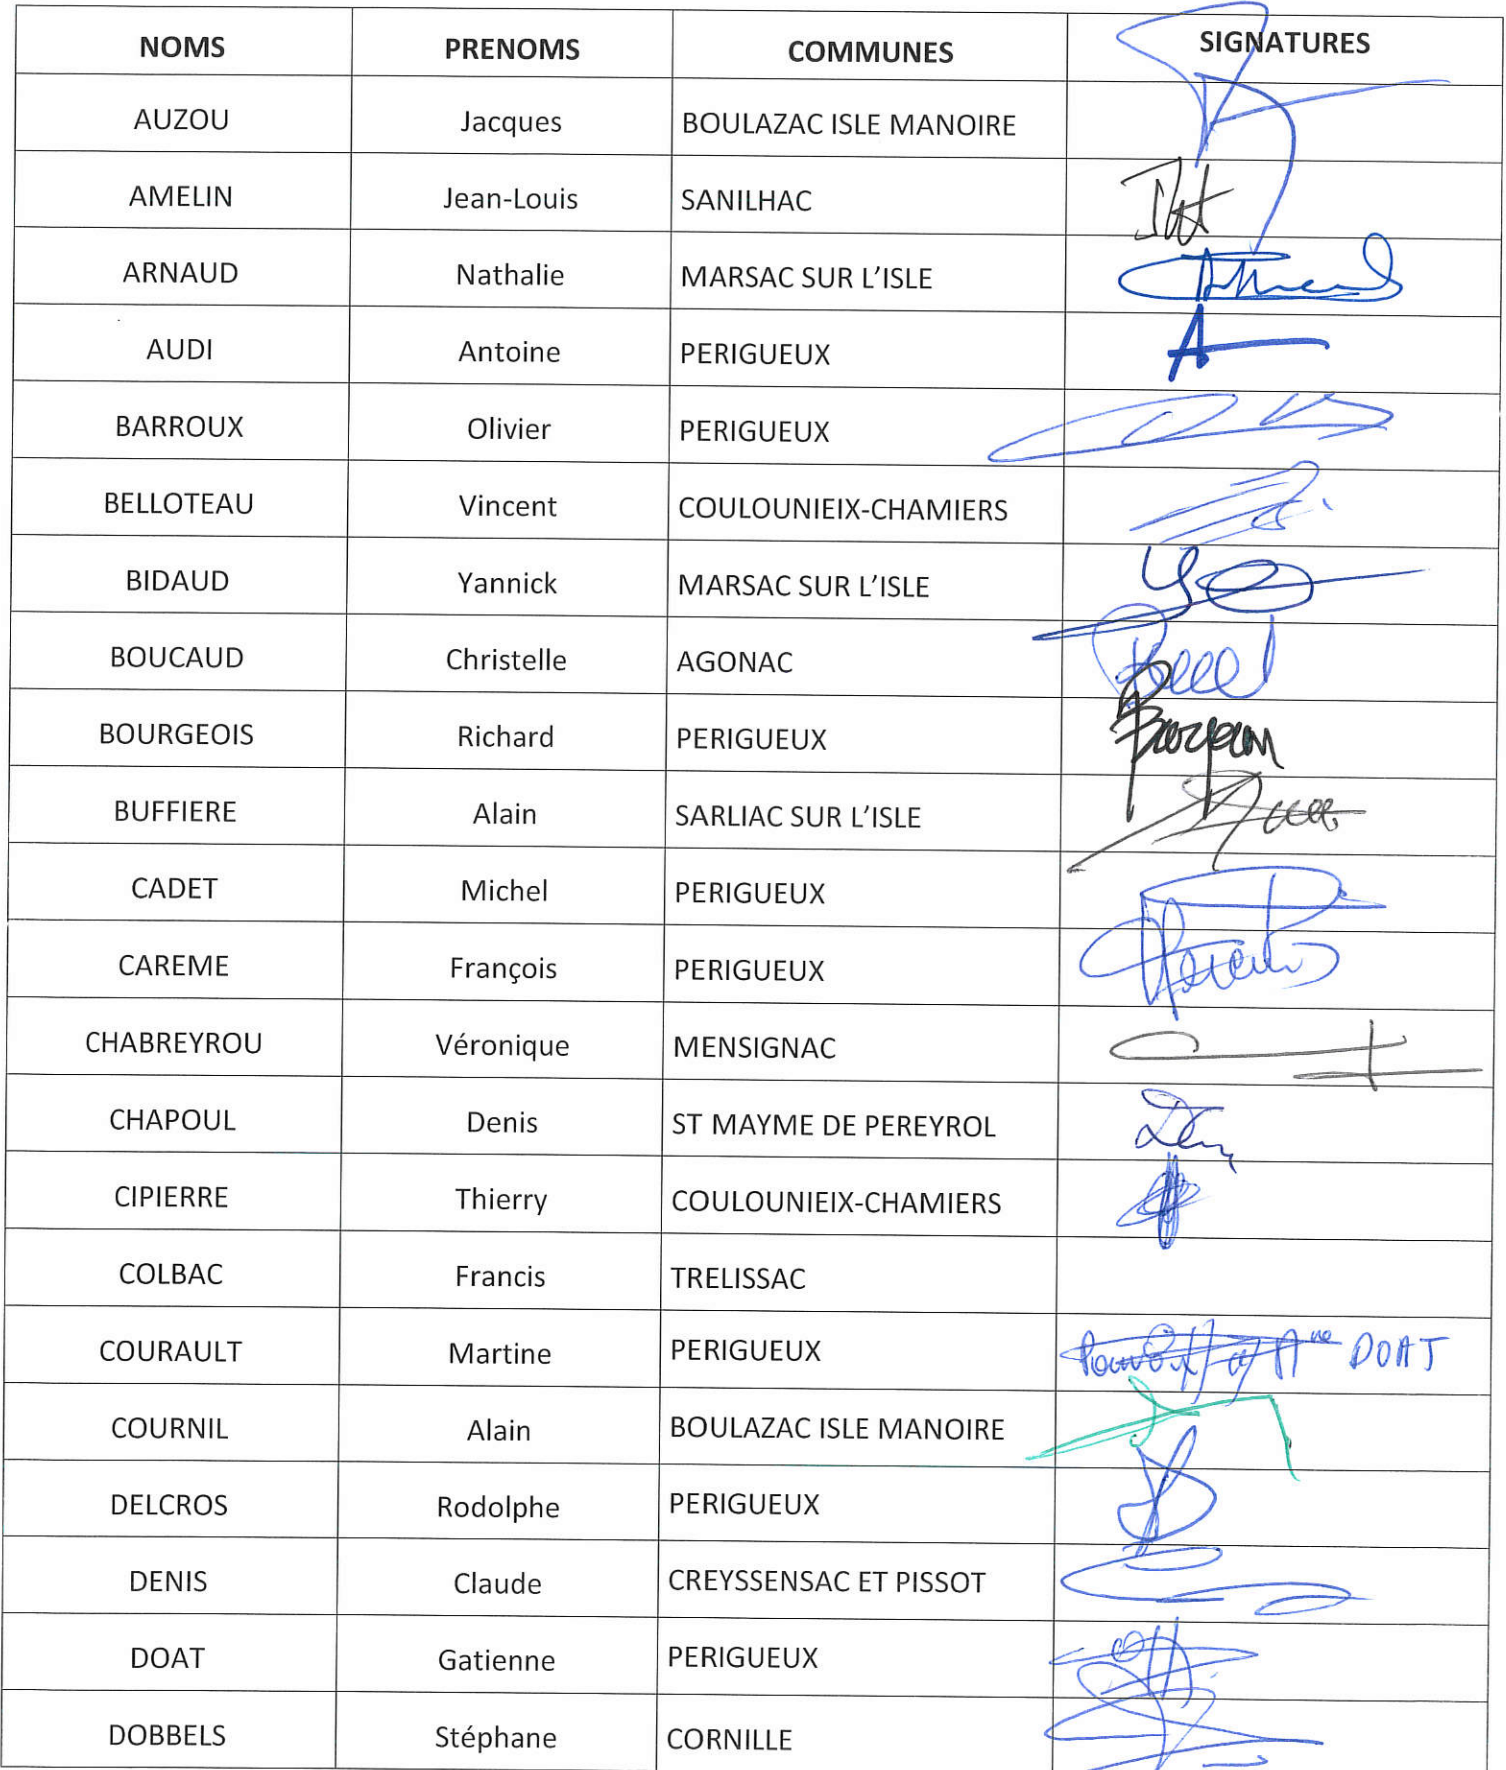 NOMS PRENOMS COMMUNES SIGNATURES
AUZOU Jacques BOULAZAC ISLE MANOIRE
AMELIN Jean-Louis SANILHAC
ARNAUD Nathalie MARSAC SUR L’ISLE
AUDI Antoine PERIGUEUX
BARROUX Olivier PERIGUEUX
BELLOTEAU Vincent COULOUNIEIX-CHAMIERS
BIDAUD Yannick MARSAC SUR L’ISLE
BOUCAUD Christelle AGONAC
BOURGEOIS Richard PERIGUEUX
BUFFIERE Alain SARLIAC SUR L’ISLE
CADET Michel PERIGUEUX
CAREME François PERIGUEUX
CHABREYROU Véronique MENSIGNAC
CHAPOUL Denis ST MAYME DE PEREYROL
CIPIERRE Thierry COULOUNIEIX-CHAMIERS
COLBAC Francis TRELISSAC
COURAULT Martine PERIGUEUX DOAT
COURNIL Alain BOULAZAC ISLE MANOIRE
DELCROS Rodolphe PERIGUEUX
DENIS Claude CREYSSENSAC ET PISSOT
DOAT Gatienne PERIGUEUX
DOBBELS Stéphane CORNILLE